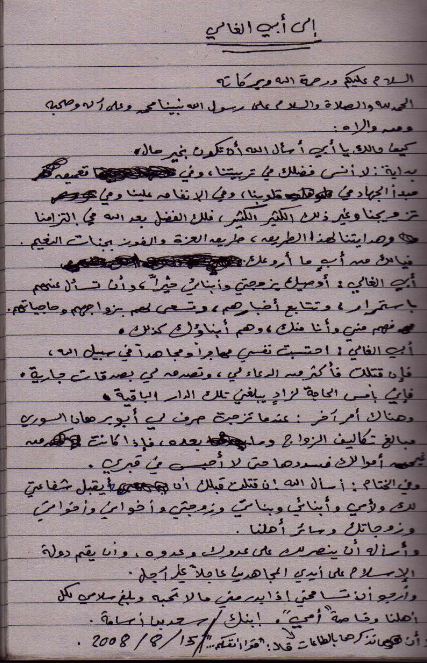 إلى أبي الغالي
السلام عليكم ورحمة الله وبركاته
الحمد لله والصلاة والسلام على رسول الله نبينا محمد وعلى آله وصحبه
ومن والاه:
كيف حالك يا أبي أسأل الله أن تكون بخير حال،
بداية: لا أنسى فضلك في تربيتنا، وفي تعميق
مبدأ الجهاد في قلوبنا، وفي الإنفاق علينا وفي
تزويجنا وغير ذلك الكثير الكثير، فلك الفضل بعد الله في التزامنا
وهدايتنا لهذا الطريق، طريق العزة والفوز بجنات النعيم.
فيالك من أبٍ ما أروعك
أبي الغالي: أوصيك بزوجتي وأبنائي خيراً، وأن تسأل عنهم
باستمرار، وتتابع أخبارهم، وتسعى لهم بزواجهم وحاجاتهم.
فهم مني وأنا منك، وهم أبناؤك كذلك.
أبي الغالي: احتسبت نفسي مهاجراً ومجاهداً في سبيل الله،
فإن قتلت فأكثر من الدعاء لي، وتصدق لي بصدقات جارية.
فإني بأمس الحاجة لزادٍ يبلغني تلك الدار الباقية.
وهناك أمر آخر: عندما تزوجت صرف لي أبو برهان السوري
مبالغ تكاليف الزواج وما بعده، فإذا كانت من
أموالك فسددها حتى لا أحبس في قبري.
وفي الختام: أسأل الله إن قتلت قبلك أن يقبل شفاعتي
لك ولأمي وأبنائي وبناتي وزوجتي وأخواني وأخواتي
وزوجاتك وسائر أهلنا.
وأسأله أن ينصرك على عدوك وعدوه، وأن يقيم دولة
الإسلام على أيدي المجاهدين عاجلاً غير آجل.
وأرجو أن تسامحني إذا بدر مني ما لا تحبه وبلغ سلامي لكل
أهلنا وخاصة "أمي". ابنك / سعد بن أسامة.
2008/8/15